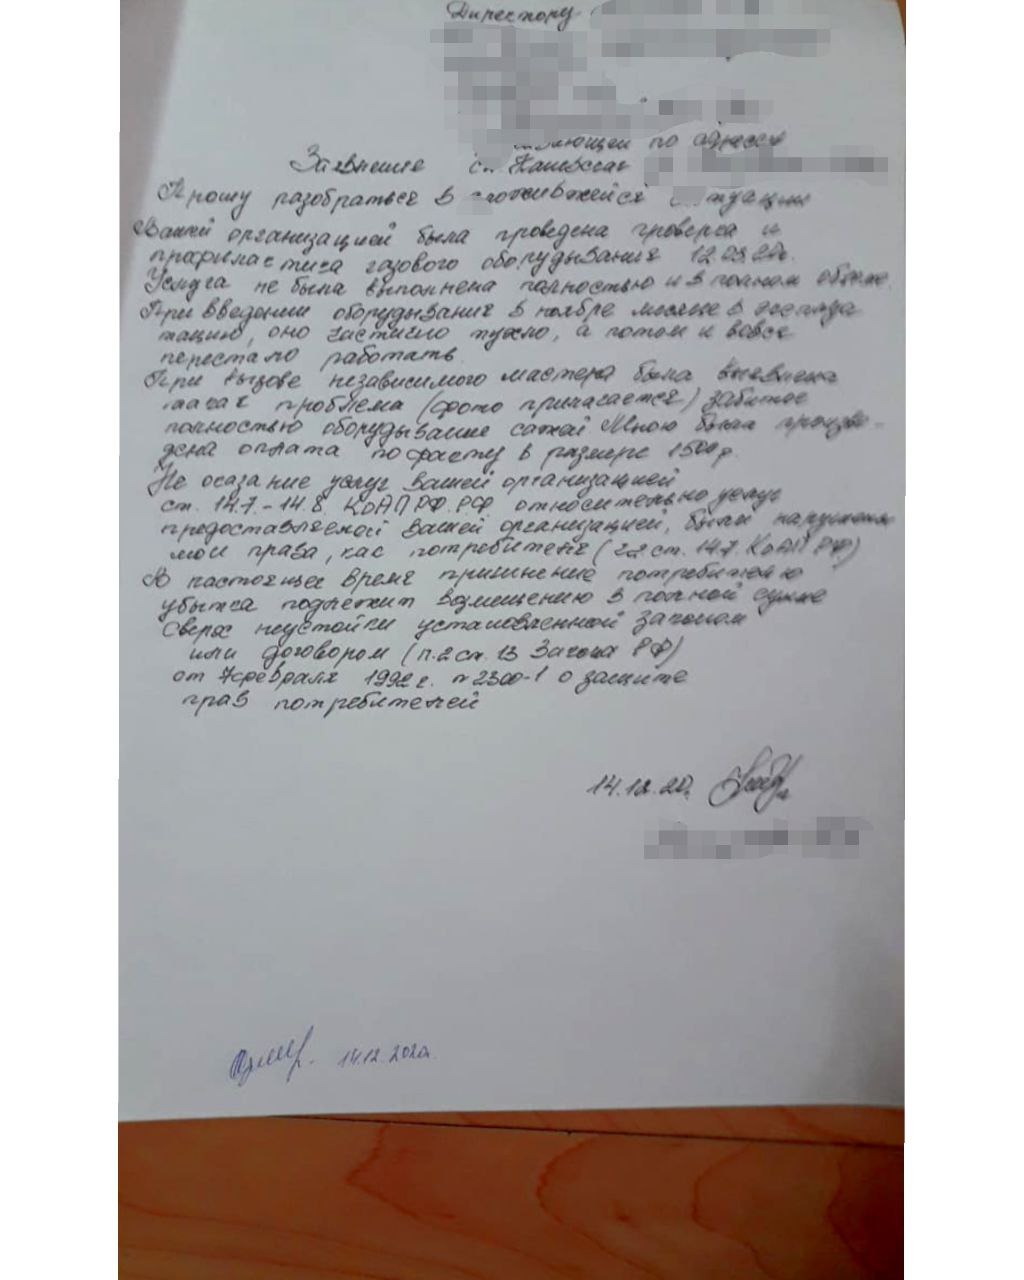 Директору
по адресу
Заявление ст. Каневская
Прошу разобраться в сложившейся ситуации
Вашей организацией была проведена проверка и
профилактика газового оборудывания 12.09.20г.
Услуга не была выполнена полностью и в полном объеме.
При введении оборудывания в ноябре месяце в эксплуа
тацию, оно частично тухло, а потом и вовсе
перестало работать.
При вызове независимого мастера была выявлена
проблема (фото прилагается) забитое
полностью оборудывание сажей Мною была произве-
дена оплата по факту в размере 1500 р.
Не оказание услуг Вашей организацией
ст. 14.7.-14.8 КоАП РФ. РФ. относительно услуг
предоставляемой вашей организацией, были нарушены
мои права, как потребителя ( ст. 14.7. КоАП РФ)
В настоящее время причинение потребителю
убытка подлежит возмещению в полной сумме
сверх неустойки установленной законом
или договором (п.2 ст. 13 Закона РФ)
от 7 февраля 1992 г. N 2300-1 о защите
прав потребителей
14.12.20.
14.12.2020